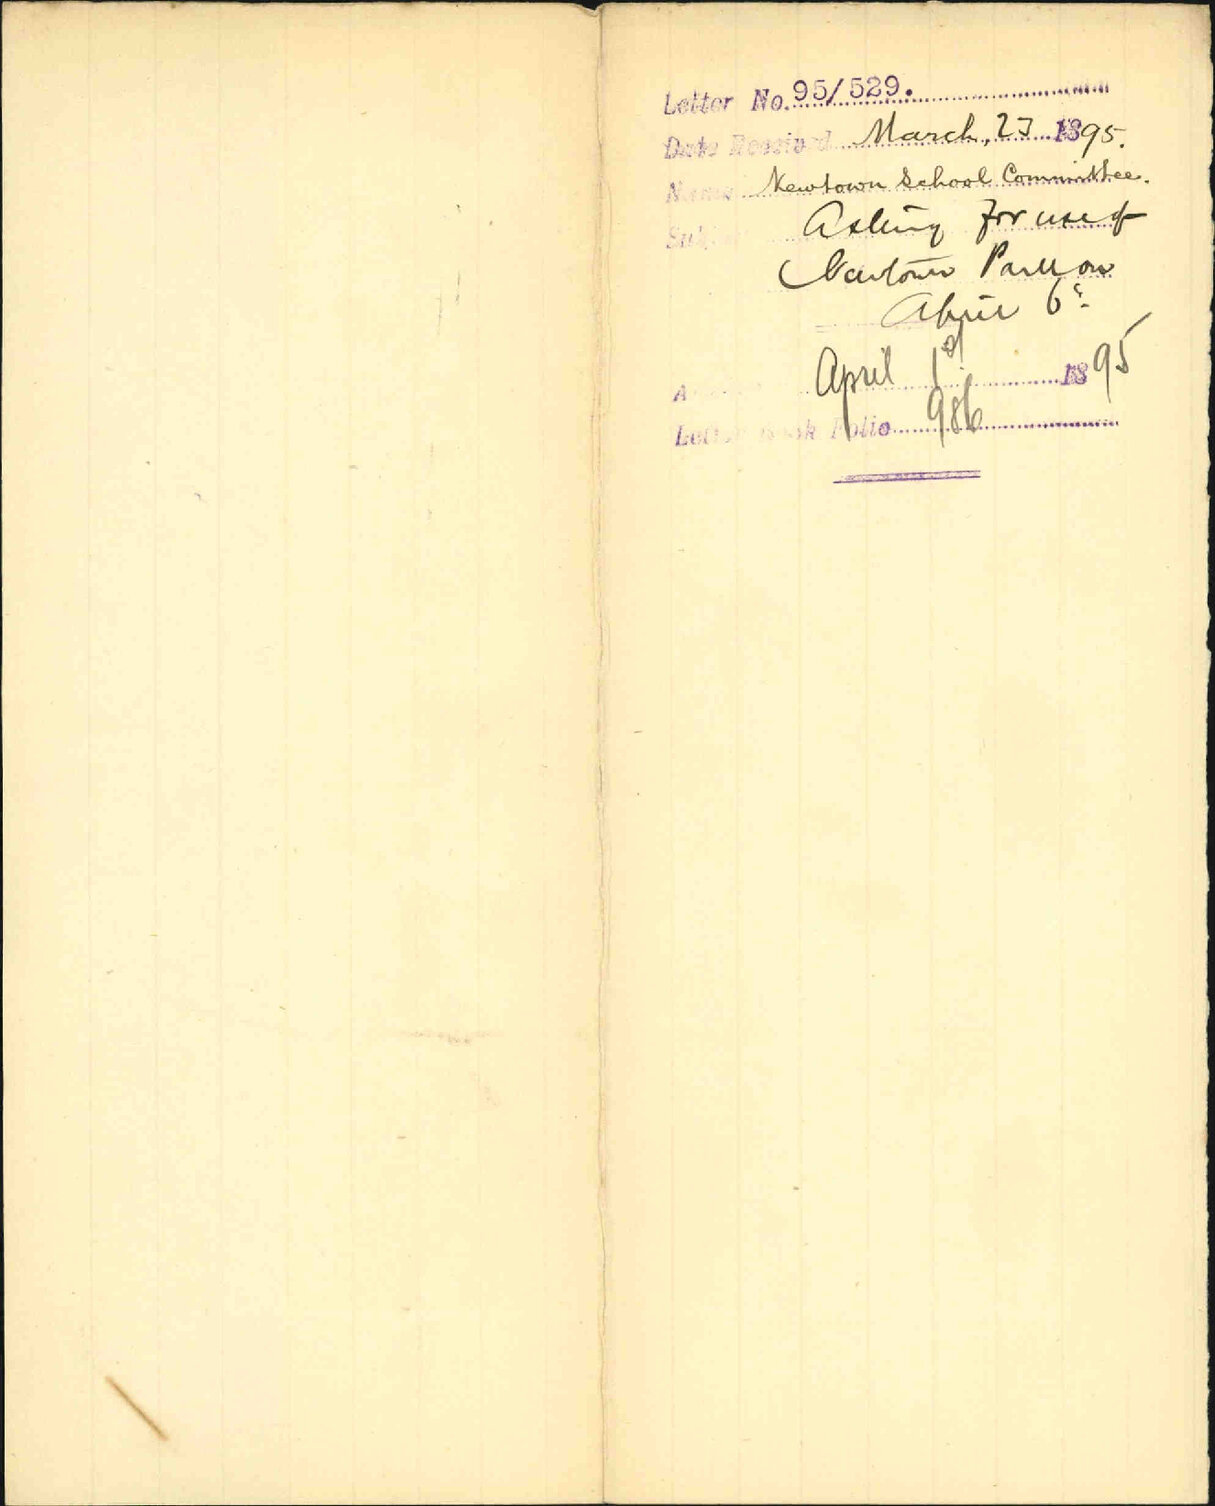 Letter No. 95/529.
Date Received March, 27 1895.
Name Newtown School Committee.
Subject Asking for use of
Newtown Park on
April 6
April 1st 1895
Letter Book Folio 986